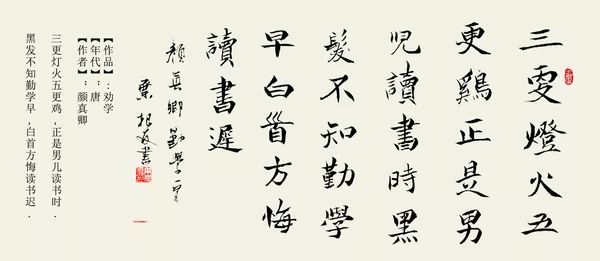 三更燈火五
更鷄正是男
児讀書時黑
髮不知勤學
早白首方悔
讀書遲
顏真卿勸學一首
葉根友書
【作品】:劝学
【年代】:唐
【作者】:颜真卿
三更灯火五更鸡,正是男儿读书时.
黑发不知勤学早,白首方悔读书迟.